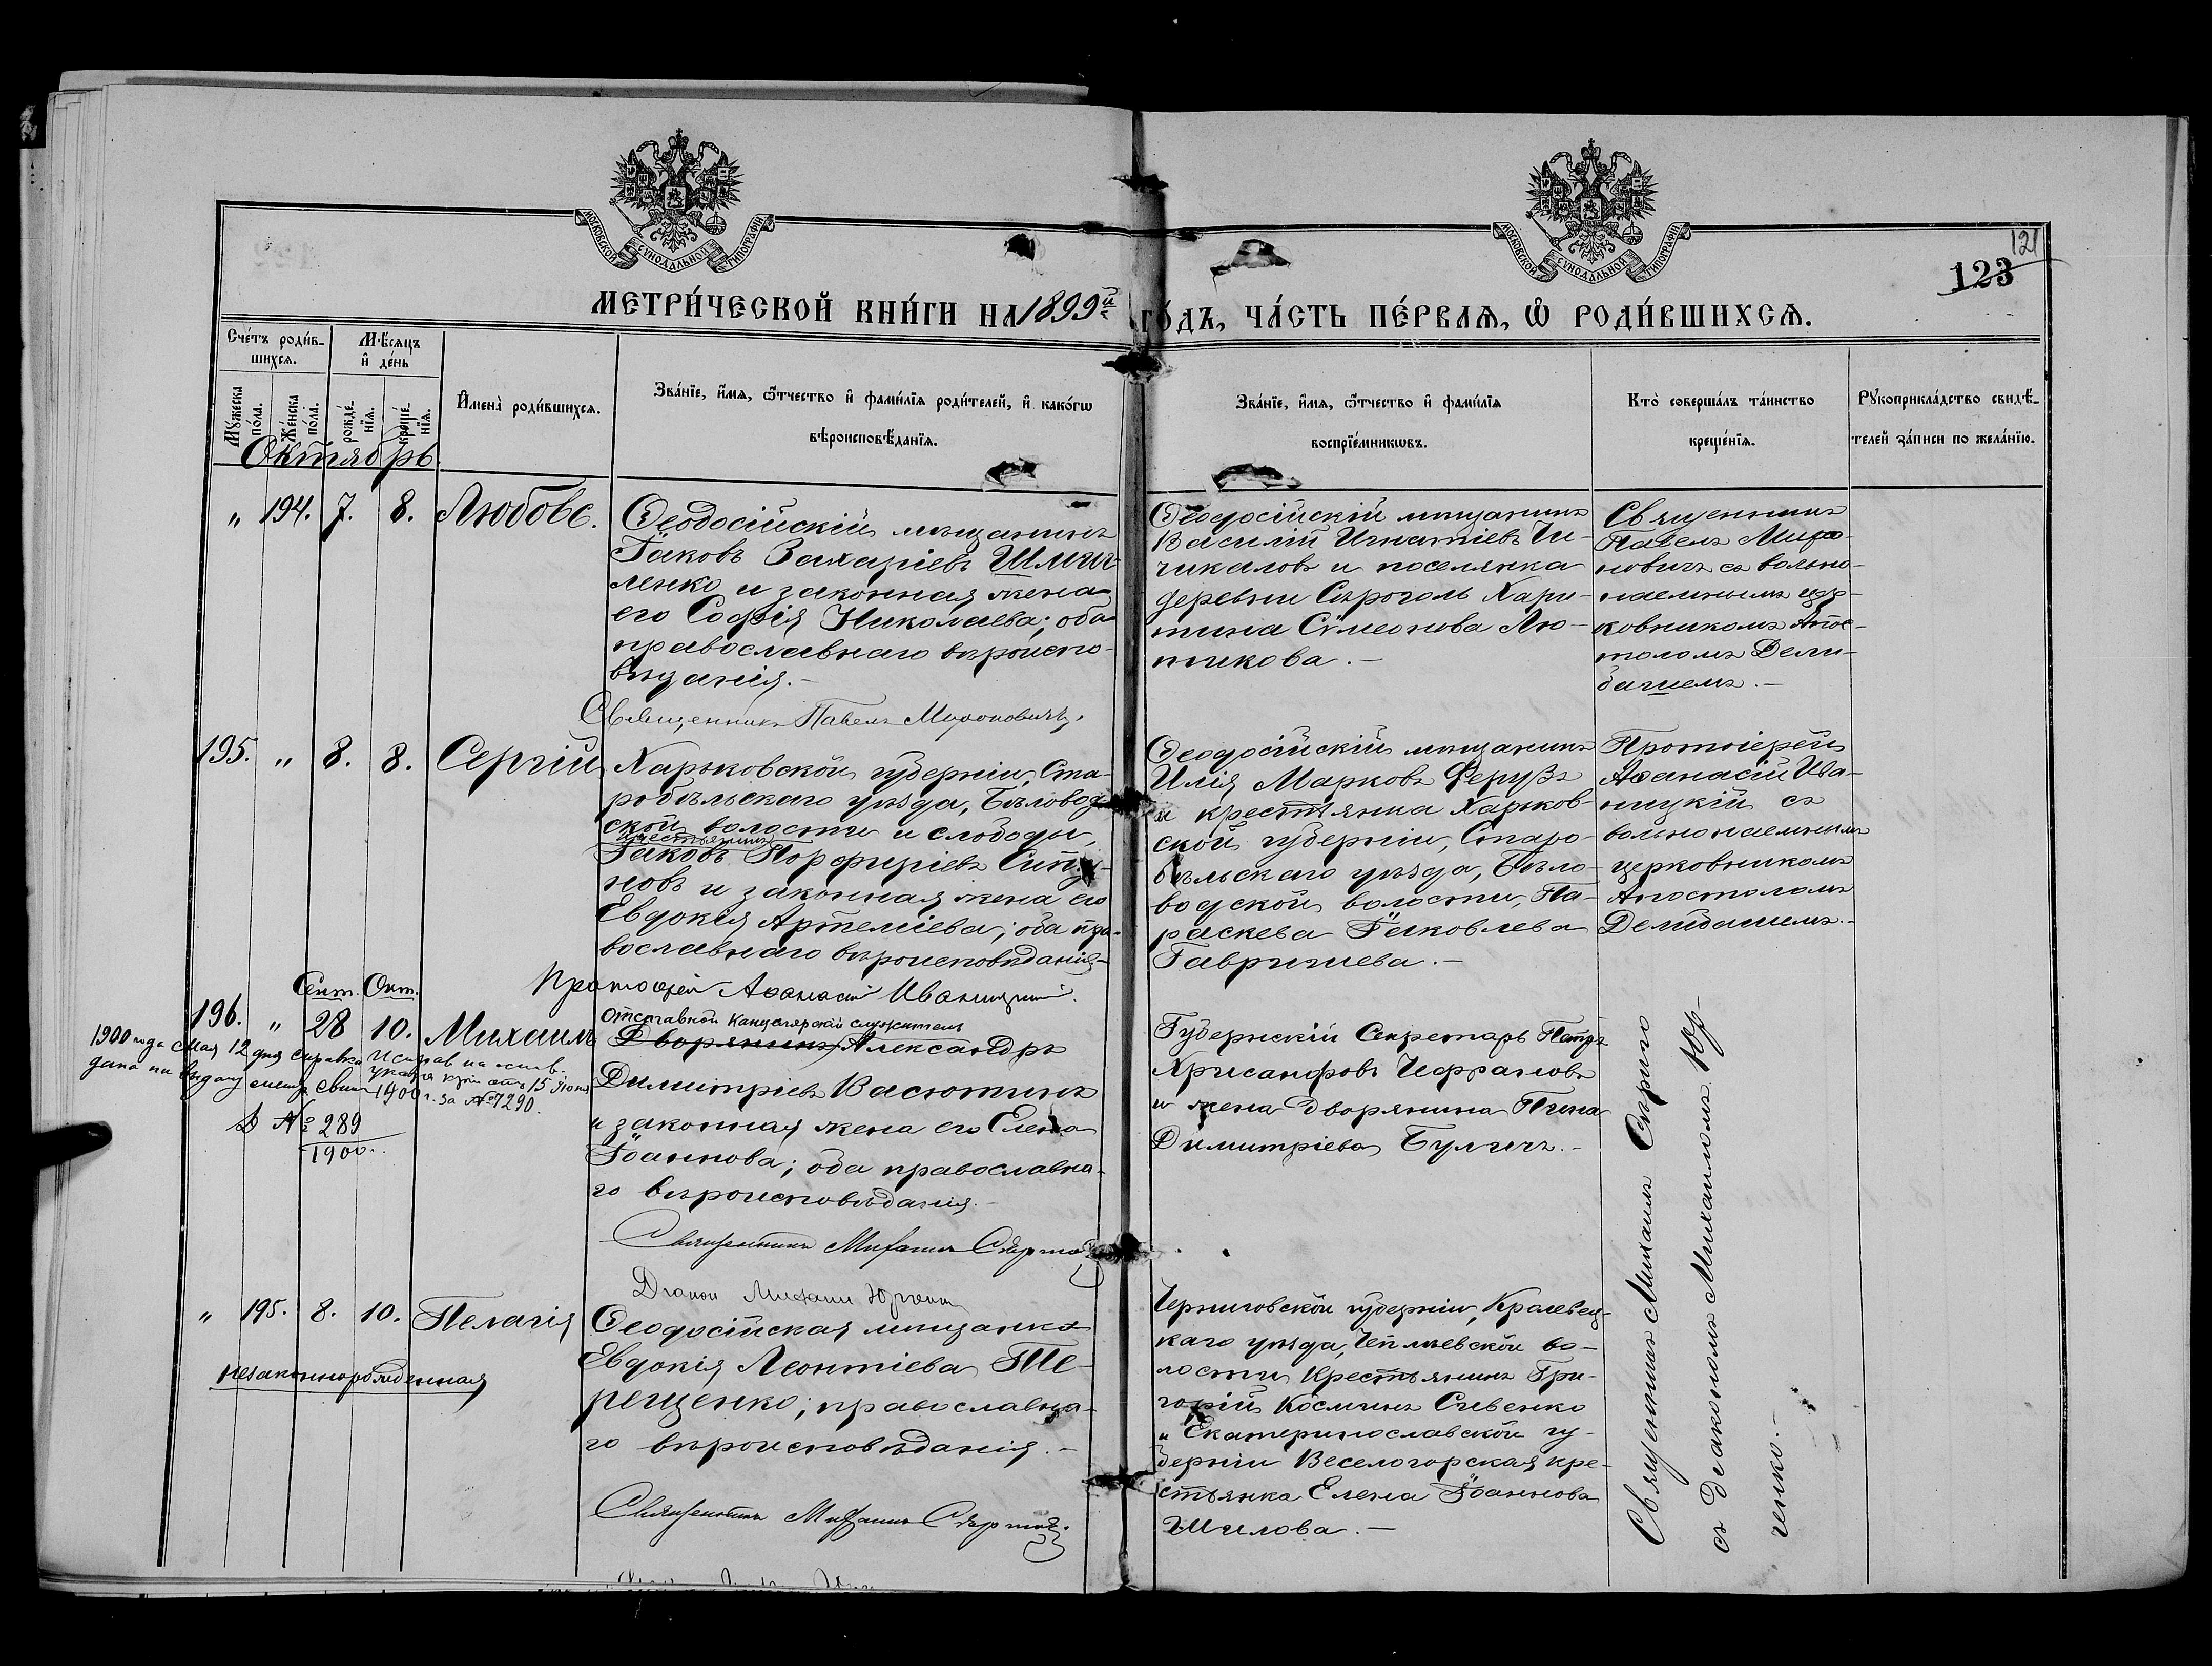 МОСКОВСКОЙ СѴНОДАЛЬНОЙ ТИПОГРАФІИ
МОСКОВСКОЙ СѴНОДАЛЬНОЙ ТИПОГРАФІИ
121
123
МЕТРИ́ЧЕСКОЙ КНИ́ГИ НА 1899й ГО́ДЪ, ЧА́СТЬ ПЕ́РВАѦ, Ѡ҆ РОДИ́ВШИХСѦ.
Сче́тъ роди́в-
шихсѧ.
Мѣ́сѧцъ
и҆ де́нь
Мꙋ́жеска
по́ла.
Же́нска
по́ла.
рожде́-
нїѧ.
креще́-
нїѧ.
И҆мена̀ роди́вшихсѧ.
Зва́нїе, и҆́мѧ, ѻ҆́тчество и҆ фами́лїѧ роди́телей, и҆ како́гѡ
вѣроисповѣ́данїѧ.
Зва́нїе, и҆́мѧ, ѻ҆́тчество и҆ фами́лїѧ
воспрїе́мникѡвъ.
Кто̀ соверша́лъ та́инство
креще́нїѧ.
Рꙋкоприкла́дство свидѣ́-
телей за́писи по жела́нїю.
Октябрь
" 194. 7. 8. Любовь.
Ѳеодосійскій мѣщанинъ
Іаковъ Захаріевъ
ленко и законная жена
его Софія Николаева; оба
православнаго вѣроиспо-
вѣданія.-
Священникъ Павелъ Мироновичъ.
Ѳеодосійскій мѣщанинъ
Василій Игнатіевъ Чи-
чикаловъ и поселянка
деревни Сырголь Хари-
тина Сѵмеонова Лю-
тикова.-
Священникъ
Павелъ Миро-
новичъ съ вольно-
наемнымъ цер-
ковникомъ Апос-
толомъ Дели-
башемъ.-
195. " 8. 8. Сергій
Харьковской губерніи, Ста-
робѣльскаго уѣзда, Бѣловод-
ской волости и слободы,
крестьянинъ
Іаковъ Порфиріевъ
новъ и законная жена его
Евдокія Артеміева; оба пра-
вославнаго вѣроисповѣданія.-
Протоіерей Аѳанасій Иваницкій.
Ѳеодосійскій мѣщанинъ
Илія Марковъ Ферузъ
и крестьянка Харьков-
ской губерніи, Старо-
бѣльскаго уѣзда, Бѣло-
водской волости, Па-
раскева Іаковлева
Гавричева.-
Протоіерей
Аѳанасій Ива-
ницкій съ
вольнонаемнымъ
церковникомъ
Апостоломъ
Делибашемъ.-
Сент. Окт.
196. " 28 10. Михаилъ
1900 года Мая 12 дня справка
дана на выдачу свид.
Исправ. на осн.
указа отъ 15 Іюня
1900 г. за № 7290.
№ 289
1900.
Отставной Канцелярскій служитель
Дворянинъ Александръ
Димитріевъ Васютинъ
и законная жена его Елена
Іоаннова; оба православна-
го вѣроисповѣданія.-
Священникъ Михаилъ
Діаконъ Михаилъ Юрченко
Губернскій Секретарь Петръ
Хрисанфовъ
и жена дворянина Нина
Димитріева Буличъ.-
Священникъ Михаилъ
съ діакономъ Михаиломъ Юр-
ченко.-
" 195. 8. 10. Пелагія
незаконнорожденная
Ѳеодосійская мѣщанка
Евдокія Леонтіева Те-
рещенко; православна-
го вѣроисповѣданія.-
Священникъ Михаилъ
Черниговской губерніи, Кролевец-
каго уѣзда, во-
лости крестьянинъ Гри-
горій Косминъ Сивенко
и Екатеринославской гу-
берніи Веселогорская кре-
стьянка Елена Іоаннова
Шилова.-